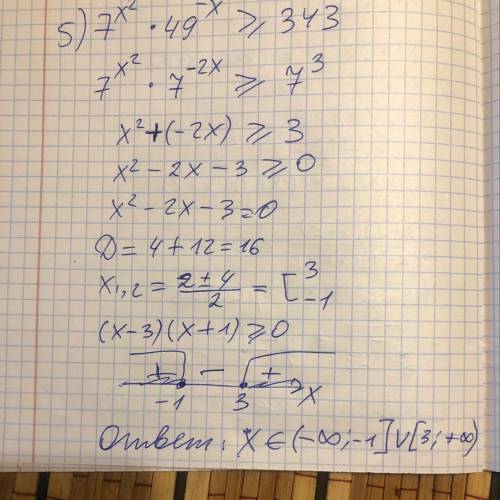 5) 7^{x^2} · 49^{-x} ⩾ 343
7^{x^2} · 7^{-2x} ⩾ 7^3
x^2 + (-2x) ⩾ 3
x^2 - 2x - 3 ⩾ 0
x^2 - 2x - 3 = 0
D = 4 + 12 = 16
x_{1,2} = \frac{2 ± 4}{2} = [ 3 -1
(x-3)(x+1) ⩾ 0
+ - +
-1 3 x
Ответ: x ∈ (-∞; -1] ∪ [3; +∞)